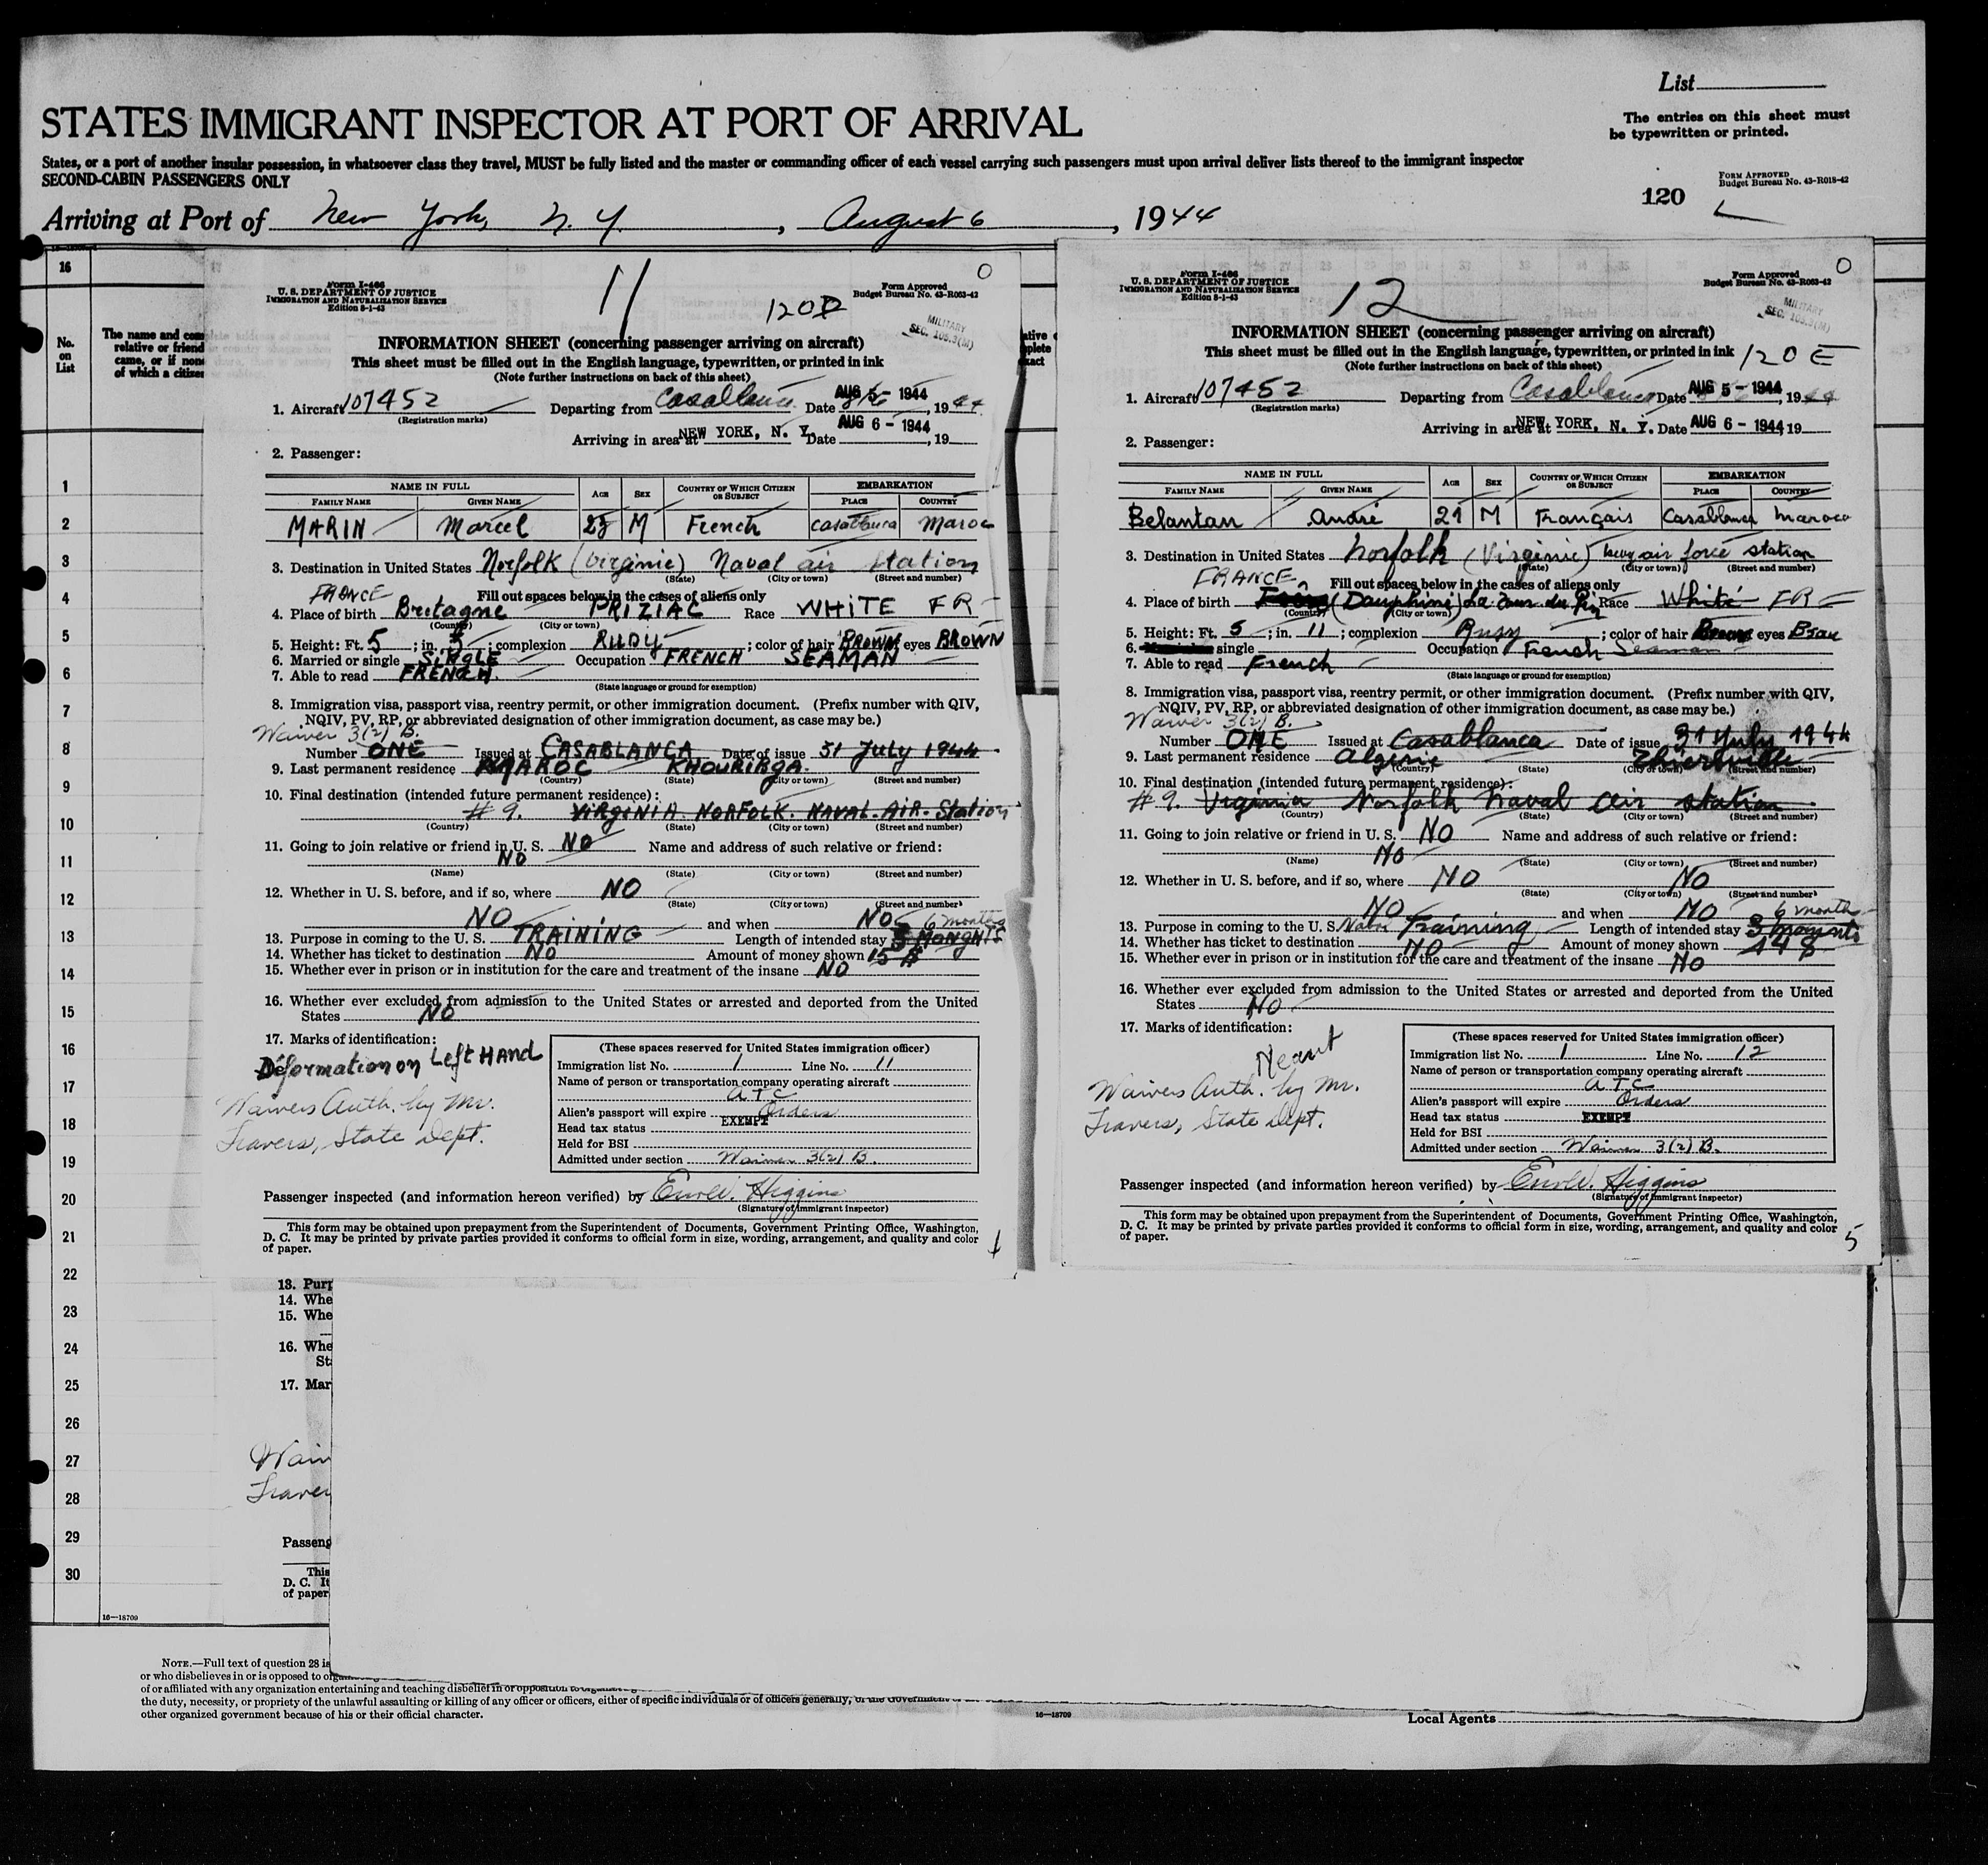 List
STATES IMMIGRANT INSPECTOR AT PORT OF ARRIVAL
The entries on this sheet must
be typewritten or printed.
States, or a port of another insular possession, in whatsoever class they travel, MUST be fully listed and the master or commanding officer of each vessel carrying such passengers must upon arrival deliver lists thereof to the immigrant inspector
SECOND-CABIN PASSENGERS ONLY
120
Form Approved
Budget Bureau No. 43-R018-42
Arriving at Port of New York, N. Y., August 6, 1944
16
No.
on
List
The name and com
relative or friend
came, or if none
of which a citizen
1
2
3
4
5
6
7
8
9
10
11
12
13
14
15
16
17
18
19
20
21
22
23
24
25
26
27
28
29
30
Form I-466
U. S. DEPARTMENT OF JUSTICE
Immigration and Naturalization Service
Edition 8-1-43
11
120D
Form Approved
Budget Bureau No. 43-R063-42
0
MILITARY
SEC.
INFORMATION SHEET (concerning passenger arriving on aircraft)
This sheet must be filled out in the English language, typewritten, or printed in ink
(Note further instructions on back of this sheet)
1. Aircraft 107452 Departing from Casablanca Date AUG 5 - 1944, 1944
(Registration marks)
Arriving in area at NEW YORK, N. Y. Date AUG 6 - 1944, 19
2. Passenger:
NAME IN FULL Age Sex Country of Which Citizen or Subject EMBARKATION
Family Name Given Name Place Country
MARIN Marcel M French Casablanca Maroc
3. Destination in United States Norfolk (Virginie) Naval air station
(State) (City or town) (Street and number)
FRANCE Fill out spaces below in the cases of aliens only
4. Place of birth Bretagne PRIZIAC Race WHITE FR
(Country) (City or town)
5. Height: Ft. 5; in. 5; complexion RUDY; color of hair BROWN eyes BROWN
6. Married or single SINGLE Occupation FRENCH SEAMAN
7. Able to read FRENCH
(State language or ground for exemption)
8. Immigration visa, passport visa, reentry permit, or other immigration document. (Prefix number with QIV,
NQIV, PV, RP, or abbreviated designation of other immigration document, as case may be.)
Waiver 3(2) B.
Number ONE Issued at CASABLANCA Date of issue 31 July 1944
9. Last permanent residence MAROC KHOURIRGA
(Country) (State) (City or town) (Street and number)
10. Final destination (intended future permanent residence):
# 9. VIRGINIA NORFOLK. NAVAL. AIR. Station
(Country) (State) (City or town) (Street and number)
11. Going to join relative or friend in U. S. NO Name and address of such relative or friend:
NO
(Name) (State) (City or town) (Street and number)
12. Whether in U. S. before, and if so, where NO
(State) (City or town) (Street and number)
NO and when NO 6 months
13. Purpose in coming to the U. S. TRAINING Length of intended stay 3 MONGHTS
14. Whether has ticket to destination NO Amount of money shown 15 $
15. Whether ever in prison or in institution for the care and treatment of the insane NO
16. Whether ever excluded from admission to the United States or arrested and deported from the United
States NO
17. Marks of identification:
Déformation on Left HAND
Waivers Auth. by Mr.
Travers, State Dept.
(These spaces reserved for United States immigration officer)
Immigration list No. 1 Line No. 11
Name of person or transportation company operating aircraft
ATC
Alien's passport will expire Orders
Head tax status EXEMPT
Held for BSI
Admitted under section Waiver 3(2) B.
Passenger inspected (and information hereon verified) by Higgins
(Signature of immigrant inspector)
This form may be obtained upon prepayment from the Superintendent of Documents, Government Printing Office, Washington,
D. C. It may be printed by private parties provided it conforms to official form in size, wording, arrangement, and quality and color
of paper.
Form I-466
U. S. DEPARTMENT OF JUSTICE
Immigration and Naturalization Service
Edition 8-1-43
12
Form Approved
Budget Bureau No. 43-R063-42
0
MILITARY
SEC.
INFORMATION SHEET (concerning passenger arriving on aircraft)
This sheet must be filled out in the English language, typewritten, or printed in ink 120 E
(Note further instructions on back of this sheet)
1. Aircraft 107452 Departing from Casablanca Date AUG 5 - 1944, 1944
(Registration marks)
Arriving in area at NEW YORK, N. Y. Date AUG 6 - 1944 19
2. Passenger:
NAME IN FULL Age Sex Country of Which Citizen or Subject EMBARKATION
Family Name Given Name Place Country
Belantan André 21 M Français Casablanca Maroco
3. Destination in United States Norfolk (Virginie) air force station
(State) (City or town) (Street and number)
FRANCE Fill out spaces below in the cases of aliens only
4. Place of birth (Dauphiné) La Tour du Pin Race White FR
(Country) (City or town)
5. Height: Ft. 5; in. 11; complexion; color of hair eyes
6. single Occupation French Seaman
7. Able to read French
(State language or ground for exemption)
8. Immigration visa, passport visa, reentry permit, or other immigration document. (Prefix number with QIV,
NQIV, PV, RP, or abbreviated designation of other immigration document, as case may be.)
Waiver 3(2) B.
Number ONE Issued at Casablanca Date of issue 31 July 1944
9. Last permanent residence Algérie Thiersville
(Country) (State) (City or town) (Street and number)
10. Final destination (intended future permanent residence):
# 9. Virginia Norfolk Naval air station
(Country) (State) (City or town) (Street and number)
11. Going to join relative or friend in U. S. NO Name and address of such relative or friend:
NO
(Name) (State) (City or town) (Street and number)
12. Whether in U. S. before, and if so, where NO NO
(State) (City or town) (Street and number)
NO and when NO 6 months
13. Purpose in coming to the U. S. Training Length of intended stay 3
14. Whether has ticket to destination NO Amount of money shown
15. Whether ever in prison or in institution for the care and treatment of the insane NO
16. Whether ever excluded from admission to the United States or arrested and deported from the United
States NO
17. Marks of identification:
Neant
Waivers Auth. by Mr.
Travers, State Dept.
(These spaces reserved for United States immigration officer)
Immigration list No. 1 Line No. 12
Name of person or transportation company operating aircraft
ATC
Alien's passport will expire Orders
Head tax status EXEMPT
Held for BSI
Admitted under section Waiver 3(2) B.
Passenger inspected (and information hereon verified) by Higgins
(Signature of immigrant inspector)
This form may be obtained upon prepayment from the Superintendent of Documents, Government Printing Office, Washington,
D. C. It may be printed by private parties provided it conforms to official form in size, wording, arrangement, and quality and color
of paper.
5
13. Purp
14. Whe
15. Whe
16. Whe
St
17. Mar
Waiv
Traver
Passeng
This
D. C. It
of paper
16—18709
Note.—Full text of question 28 is
or who disbelieves in or is opposed to
of or affiliated with any organization entertaining and teaching disbelief in or opposition to
the duty, necessity, or propriety of the unlawful assaulting or killing of any officer or officers, either of specific individuals or of officers generally, of the Government
other organized government because of his or their official character.
16—18709
Local Agents